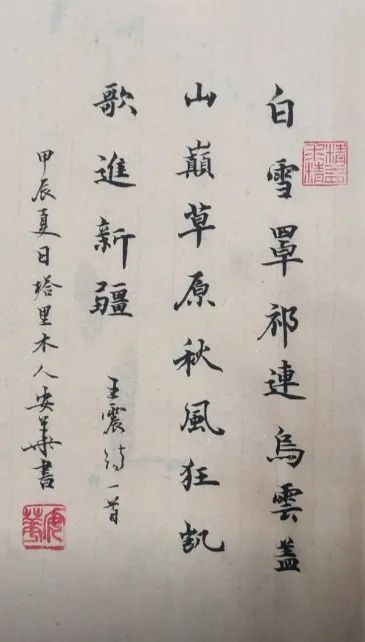 白雪罩祁連烏雲蓋
山巔草原秋風狂凱
歌進新疆
王震詩一首
甲辰夏日塔里木人安華書
安華